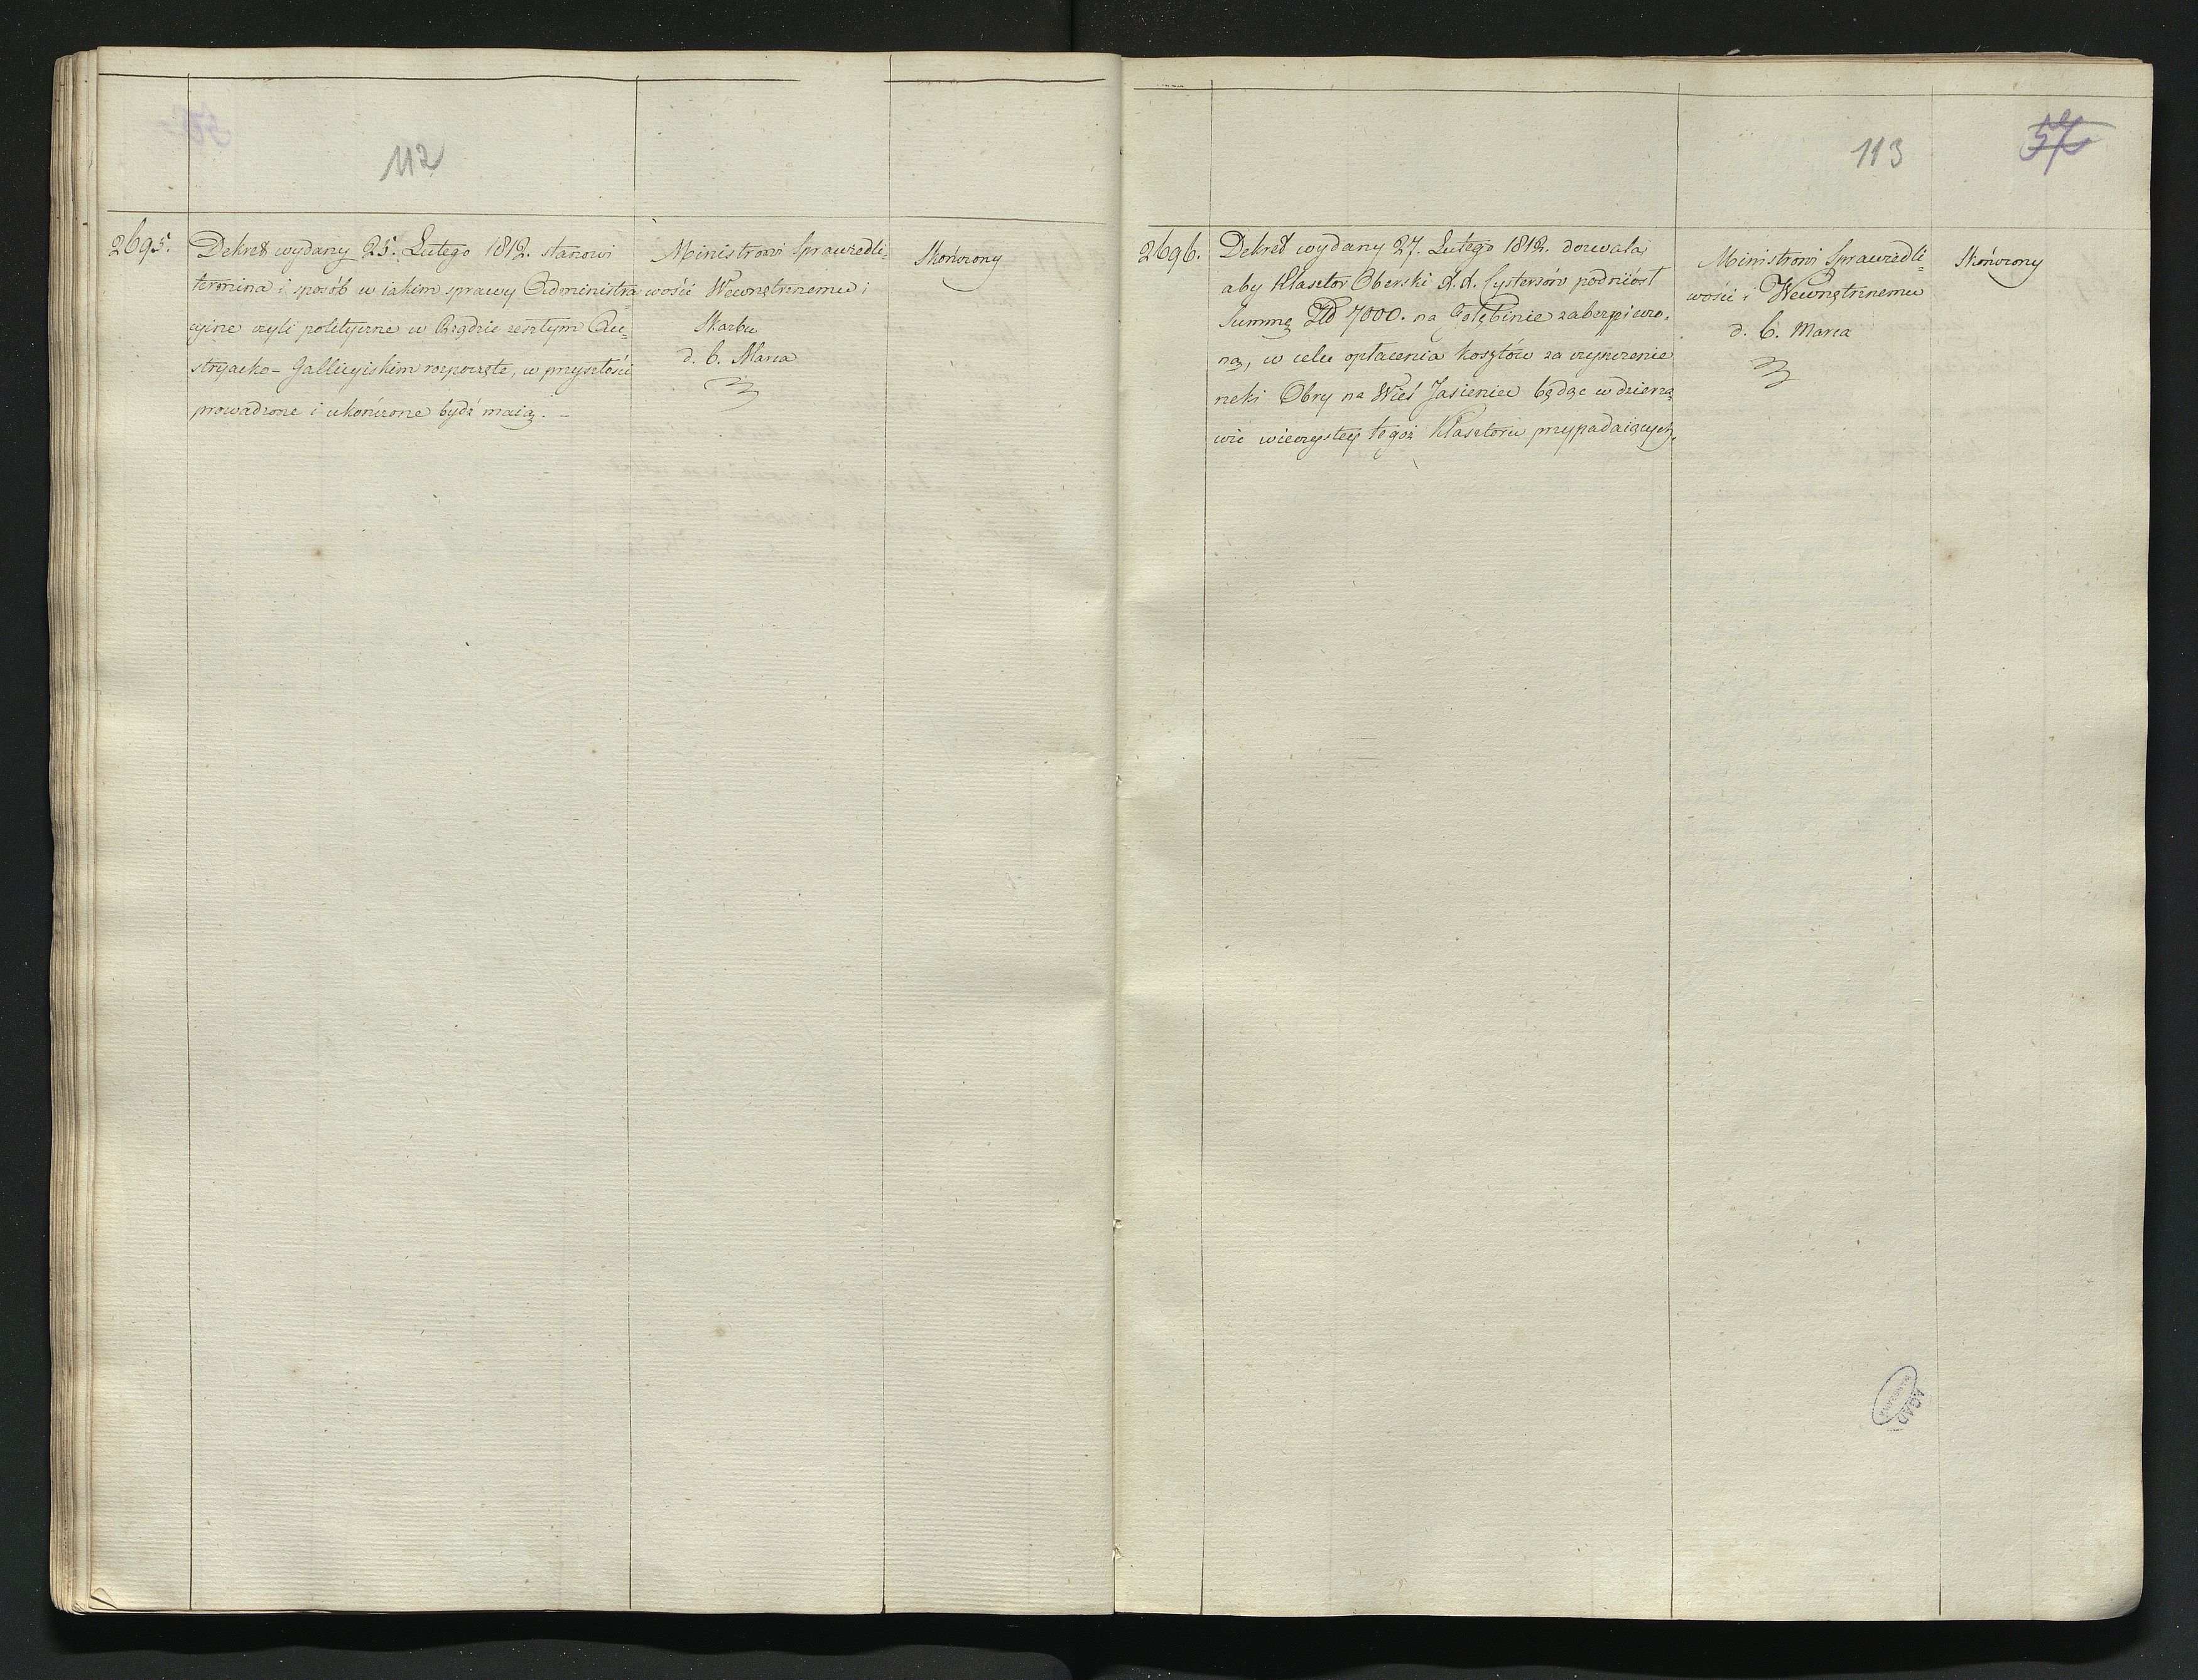 112
2695.
Dekret wydany 25. Lutego 1812. stanowi
termina i sposób w iakim sprawy Administra
cyine czyli polityczne w Rządzie zeszłym Au=
stryacko-Gallicyiskim rozpoczęte, w przyszłości
prowadzone i ukończone bydź maią. –
Ministrowi Sprawiedli=
wości Wewnętrznemu i
Skarbu
d. 6. Marca
Skończony
113
57
2696.
Dekret wydany 27. Lutego 1812. dozwala,
aby Klasztor Oberski X.X. Cystersów podniósł
Summę Zło 7000. na Gołębinie zabezpieczo.
ną, w celu opłacenia kosztów za czyszczenie
rzeki Obry na Wieś Jasieniec będąc w dzierża=
wie wieczystey tegoż Klasztoru przypadaiących.
Ministrowi Sprawiedli=
wości i Wewnętrznemu
d. 6. Marca
Skończony
AGAD
WARSZAWA